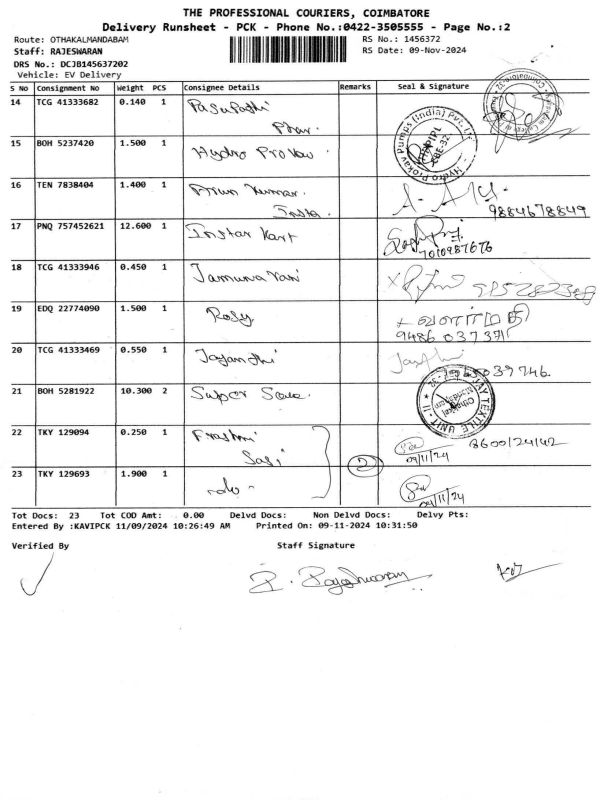 THE PROFESSIONAL COURIERS, COIMBATORE
Delivery Runsheet - PCK - Phone No.:0422-3505555 - Page No.:2
Route: OTHAKALMANDABAM
RS No.: 1456372
Staff: RAJESWARAN
RS Date: 09-Nov-2024
DRS No.: DCJB145637202
Vehicle: EV Delivery
S No Consignment No Weight PCS Consignee Details Remarks Seal & Signature
14 TCG 41333682 0.140 1 Pasupathi
15 BOH 5237420 1.500 1 Hydro Prokav
Hydro Prokav Pumps (India) Pvt. Lt
16 TEN 7838404 1.400 1 Arun Kumar
9884678849
17 PNQ 757452621 12.600 1 Instar Kart
7010987676
18 TCG 41333946 0.450 1 Jamuna Rani
19 EDQ 22774090 1.500 1 Rosy
வளர்மதி
9486 037371
20 TCG 41333469 0.550 1 Jayanthi
39746
21 BOH 5281922 10.300 2 Super
JAY TEXTILE UNIT - II
22 TKY 129094 0.250 1
Sasi
8600/24142
09/11/24
23 TKY 129693 1.900 1 -do-
2
09/11/24
Tot Docs: 23 Tot COD Amt: 0.00 Delvd Docs: Non Delvd Docs: Delvy Pts:
Entered By :KAVIPCK 11/09/2024 10:26:49 AM Printed On: 09-11-2024 10:31:50
Verified By Staff Signature
R. Rajeshwaran